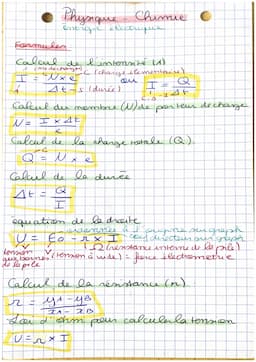 Physique - Chimie
Energie électrique
Formules
Calcul de l'intensité (A)
I = N x e / Δt (charge élémentaire) ou I = Q / Δt
s (durée)
Calcul du nombre (N) de porteur de charge
N = I x Δt / e
Calcul de la charge totale (Q)
Q = N x e
Calcul de la durée
Δt = Q / I
équation de la droite
ordonnée à l'origine sur graph
U = E0 - r x I coef directeur sur graph
Ω (résistance interne de la pile)
tension aux bornes de la pile
V (tension à vide) = force électrometrice
Calcul de la résistance (r)
r = yA - yB / xA - xB
Loi d'ohm pour calculer la tension
U = r x I